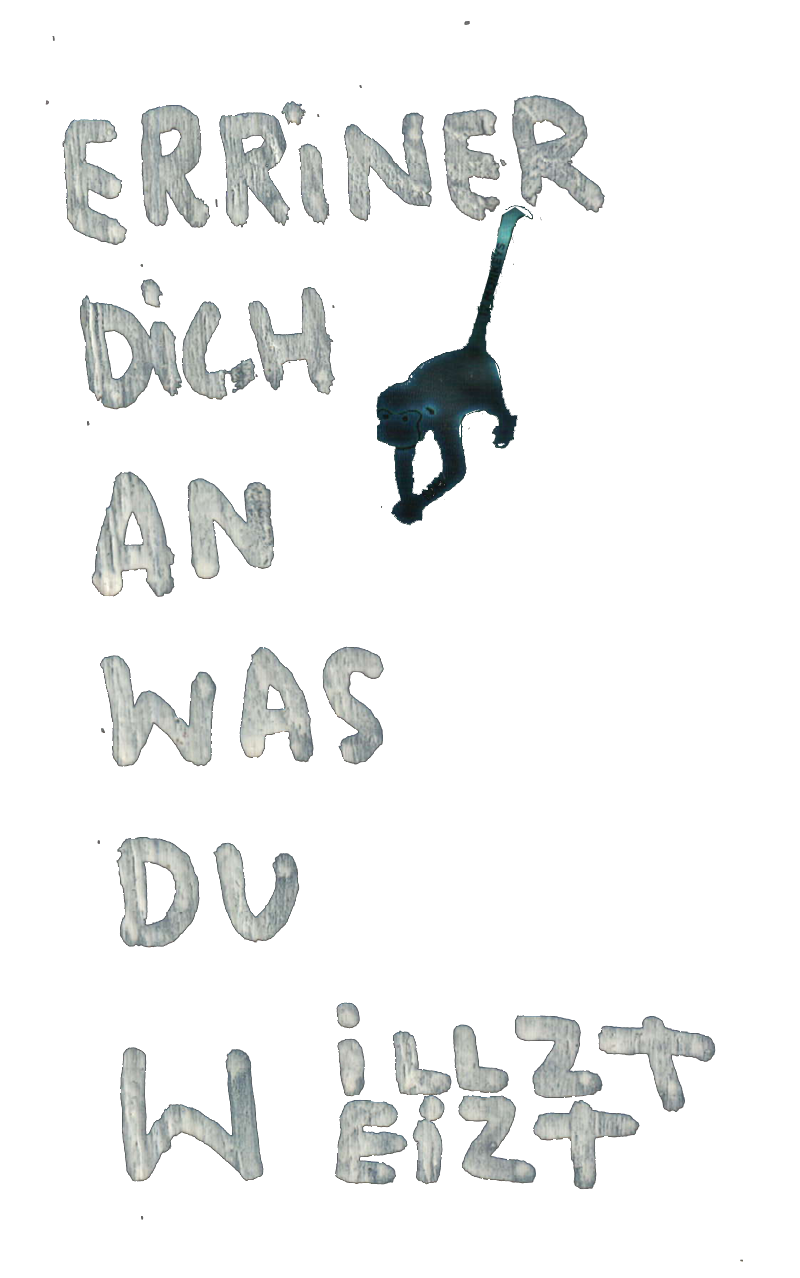 ERRiNER
DiCH
AN
WAS
DU
W iLLZT
EiZT